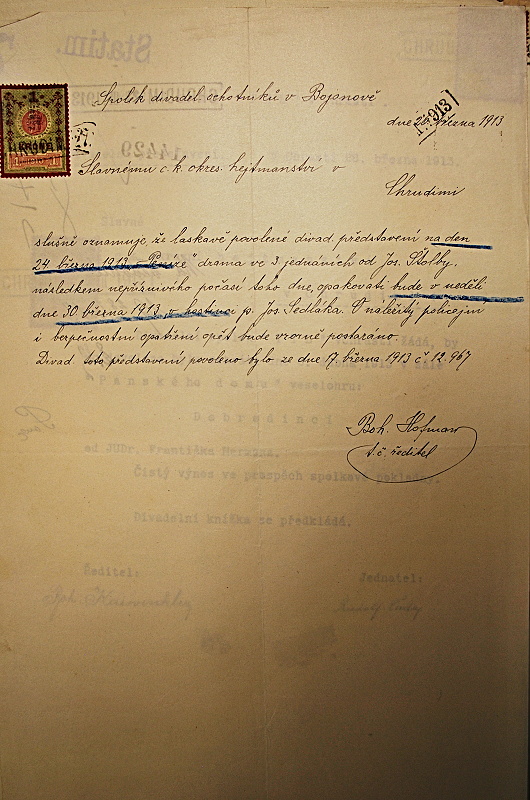 Statim.
Spolek divadel. ochotníků v Bojanově
dne března 1913
14429
Slavnému c. k. okres. hejtmanství v
Chrudimi
Slavné
slušně oznamuje, že laskavě povolené divad. představení na den
24. března 1913 „Peníze" drama ve 3 jednáních od Jos. Štolby,
následkem nepříznivého počasí toho dne, opakovati bude v neděli
dne 30. března 1913 v hostinci p. Jos. Sedláka. O náležitý policejní
i bezpečnostní opatření opět bude vzorně postaráno.
Divad. toto představení povoleno bylo ze dne 17. března 1913 č 12.967
"Panského domu" veselohru:
Dobrodinci
Boh. Hofman
t. č. ředitel
od JUDr. Františka
Čistý výnos ve prospěch spolkové pokladny.
Divadelní knížka se předkládá.
Ředitel:
Jednatel: